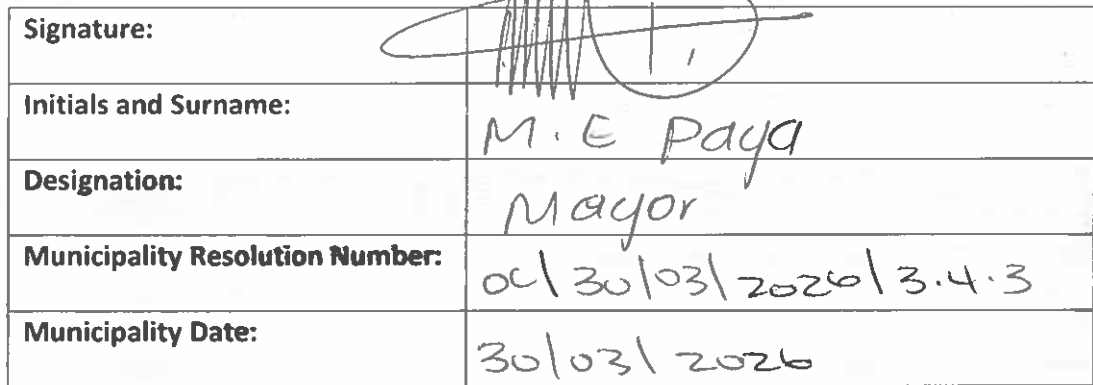 Signature:
Initials and Surname: M.E Paya
Designation: Mayor
Municipality Resolution Number: OC/30/03/2026/3.4.3
Municipality Date: 30/03/2026